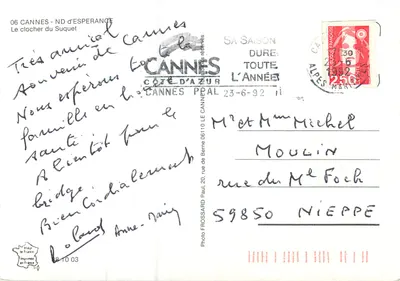 06 CANNES - ND d'ESPERANCE
Le clocher du Suquet
Très amical
souvenir de Cannes
Nous espérons toute la
famille en bonne
santé.
A bientôt pour le
bridge.
Bien Cordialement
Roland Anne-Marie
10 03
Photo FROSSARD Paul, 20, rue de Berne 06110 LE CANNET
CANNES
CÔTE D'AZUR
SA SAISON
DURE
TOUTE
L'ANNÉE
CANNES PPAL 23-6-92
2,50
ALPES
M. et Mme Michel
MOULIN
rue du Ml Foch
59850 NIEPPE